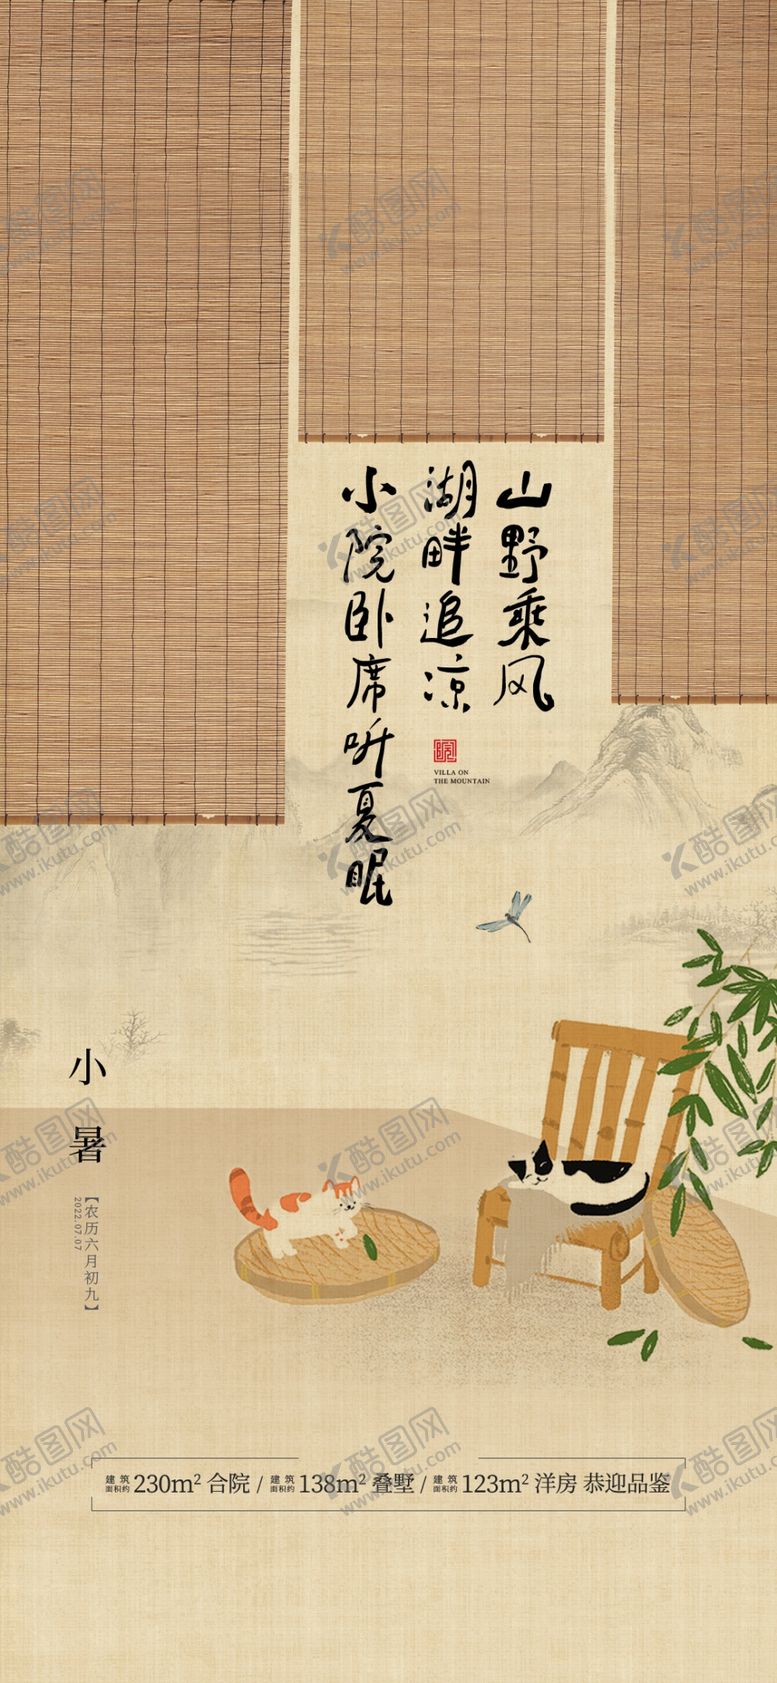 山野乘风
湖畔追凉
小院卧席听夏眠
院
VILLA ON
THE MOUNTAIN
小暑
【农历六月初九】
2022.07.07
建筑面积约230m² 合院 / 建筑面积约138m² 叠墅 / 建筑面积约123m² 洋房 恭迎品鉴
酷图网
www.ikutu.com